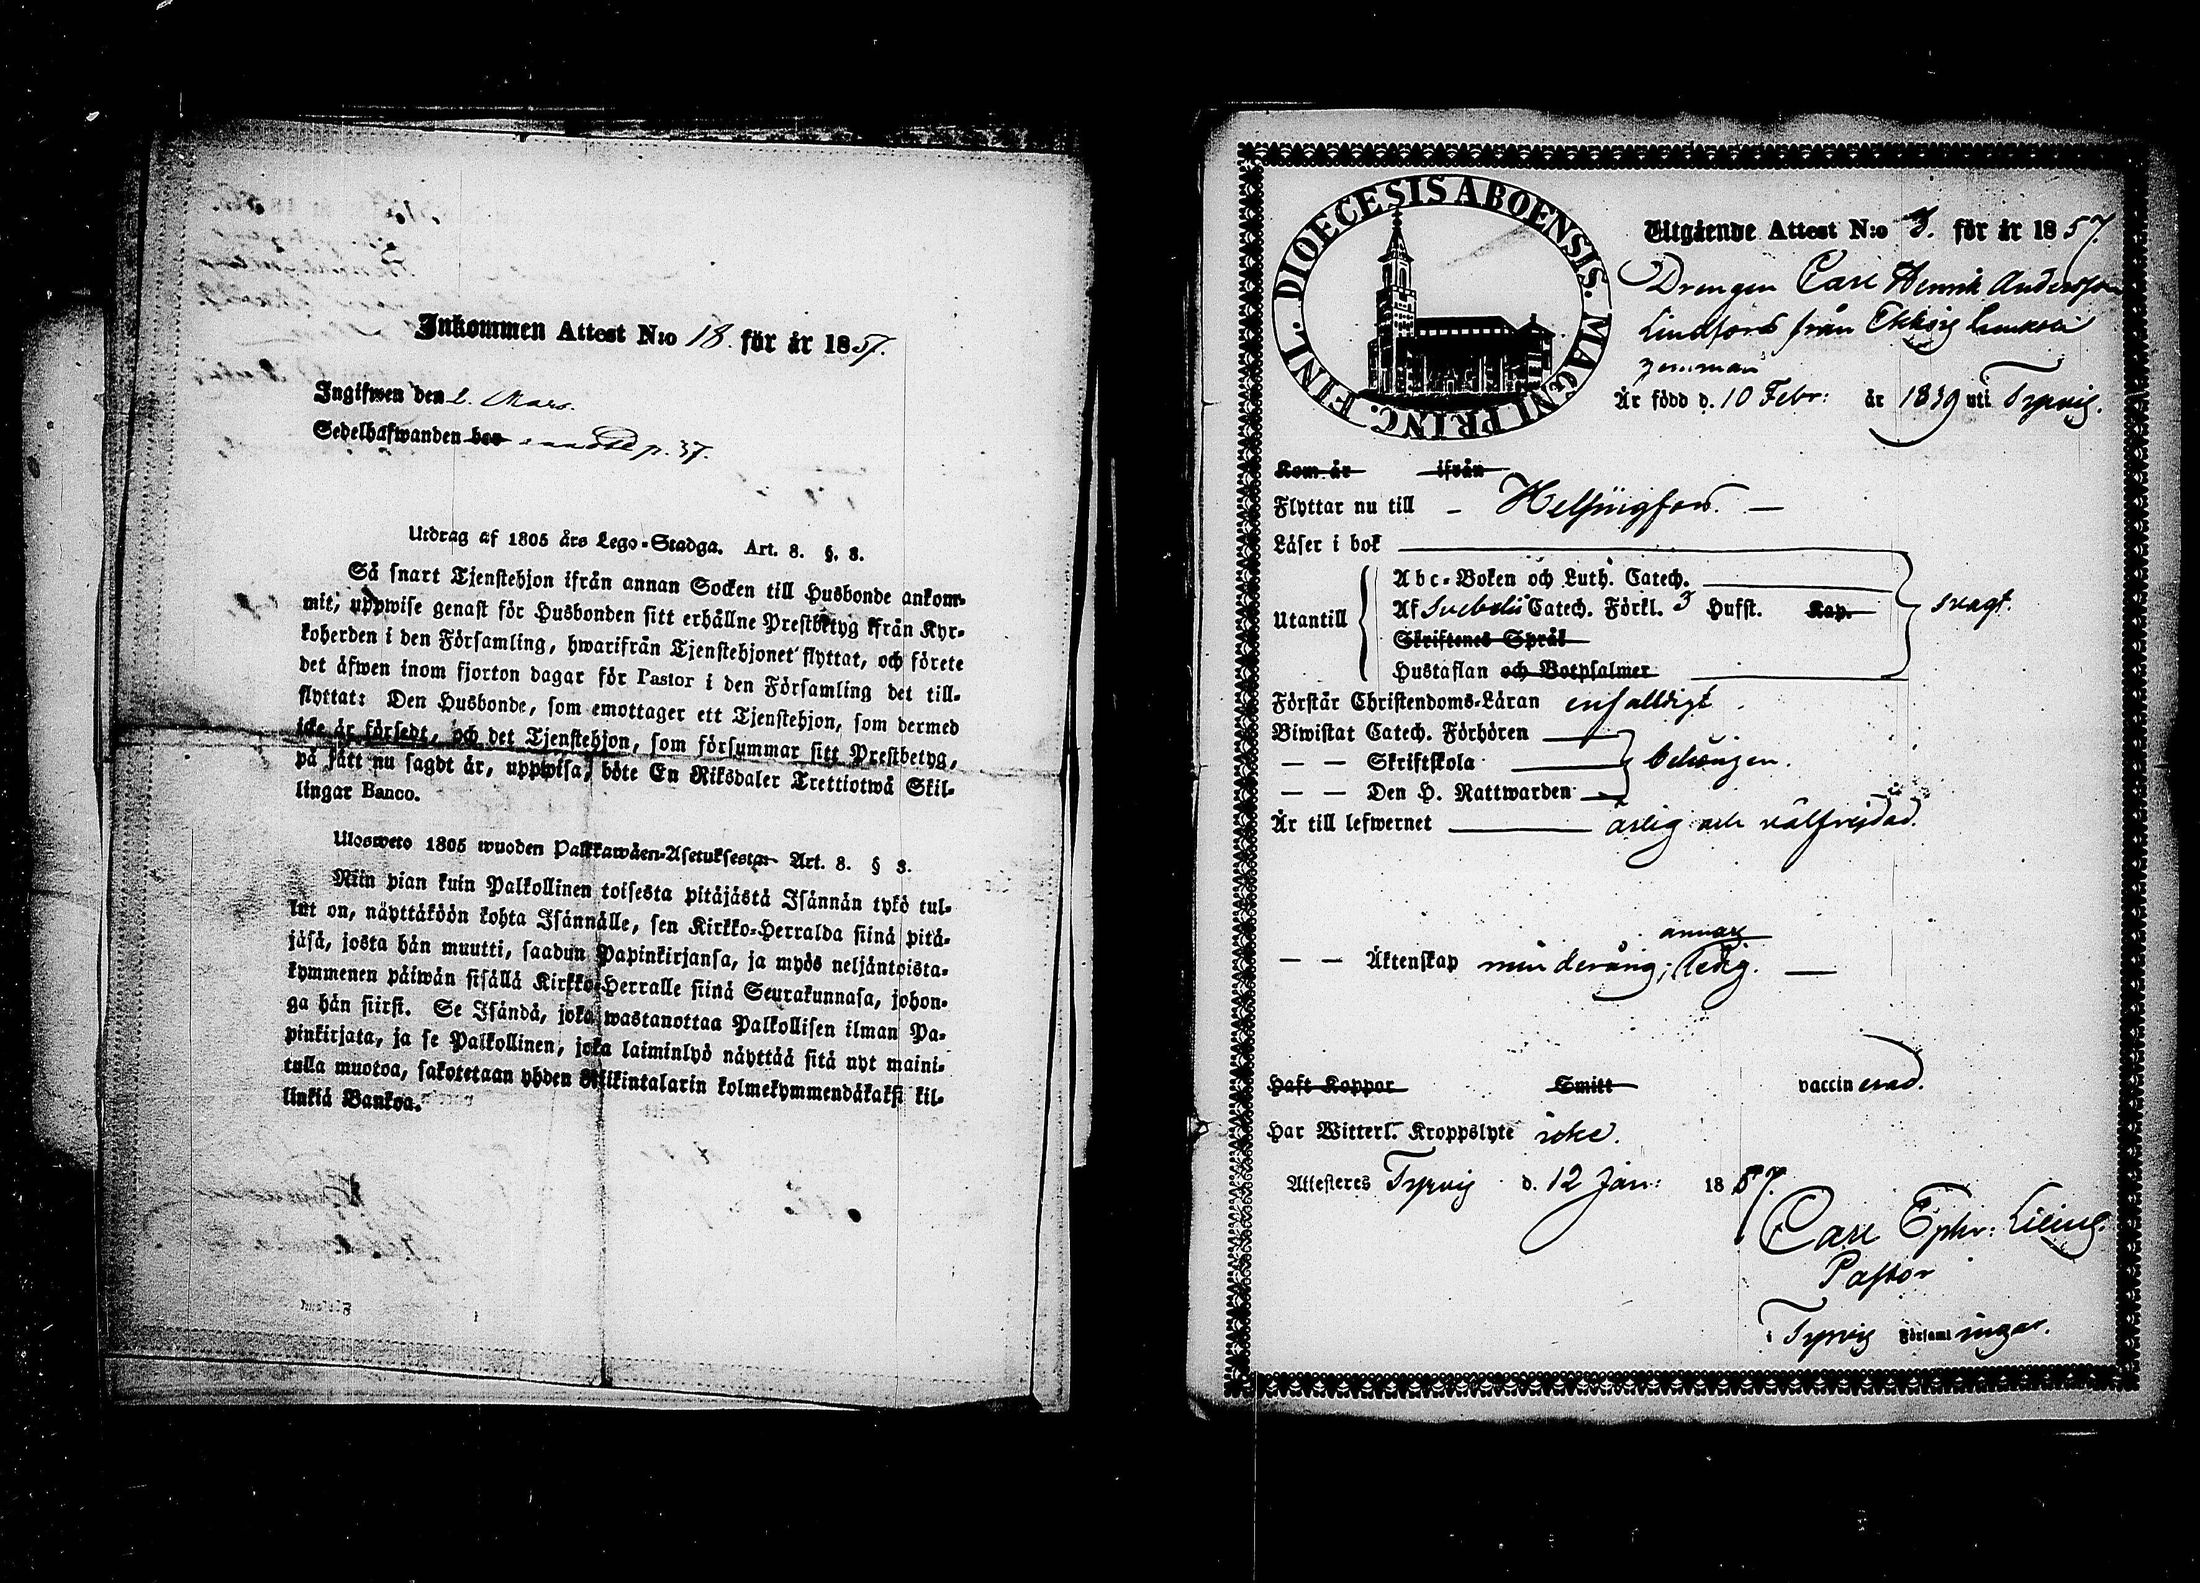 Inkommen Attest N:o 18. för år 1857.
Ingifwen den 2. Mars.
Sedelhafwanden bor p. 37.
Utdrag af 1805 års Lego-Stadga. Art. 8. §. 8.
Så snart Tjenstehjon ifrån annan Socken till Husbonde ankom-
mit, uppwise genast för Husbonden sitt erhållne Prestbetyg ifrån Kyr-
koherden i den Församling, hwarifrån Tjenstehjonet flyttat, och förete
det äfwen inom fjorton dagar för Pastor i den Församling det till-
flyttat: Den Husbonde, som emottager ett Tjenstehjon, som dermed
icke är försedt, och det Tjenstehjon, som försummar sitt Prestbetyg,
på sätt nu sagdt är, uppwisa, böte En Riksdaler Trettiotwå Skil-
lingar Banco.
Ulosweto 1805 wuoden Palkkawäen-Asetuksesta Art. 8. § 8.
Niin pian kuin Palkollinen toisesta pitäjästä Isännän tykö tul-
lut on, näyttäköön kohta Isännälle, sen Kirkko-Herralda siinä pitä-
jäsä, josta hän muutti, saadun Papinkirjansa, ja myös neljäntoista-
kymmenen päiwän sisällä Kirkko-Herralle siinä Seurakunnasa, johon-
ga hän siirsi. Se Isändä, joka wastanottaa Palkollisen ilman Pa-
pinkirjata, ja se Palkollinen, joka laiminlyö näyttää sitä nyt maini-
tulla muotoa, sakotetaan yhden Riikintalarin kolmekymmendäkaksi kil-
linkiä Bankoa.
DIOECESIS ABOENSIS. MAGNI PRINC. FINL.
Utgående Attest N:o 3. för år 1857.
Drengen Carl Henrik Andersson
Lindfors från Ekksig
Är född d. 10 Febr: år 1839 uti Typvis.
Kom år ifrån
Flyttar nu till – Helsingfors. –
Läser i bok
Abc-Boken och Luth. Catech.
Utantill Af Svebelii Catech. Förkl. 3 Hufst. Kap. svagt.
Skriftenes Språk
Hustaflan och Botpsalmer
Förstår Christendoms-Läran enfalldigt.
Biwistat Catech. Förhören
— — Skriftskola behörigen.
— — Den H. Nattwarden
Är till lefwernet ärlig och välfrejdad.
annars
— — Äktenskap minderårig; ledig. —
Haft Koppor Smitt vaccinerad.
Har Witterl. Kroppslyte icke.
Attesteres Typvis d. 12 Jan: 1857.
Carl Ephr: Lilius.
Pastor
i Typvis Församlingar.